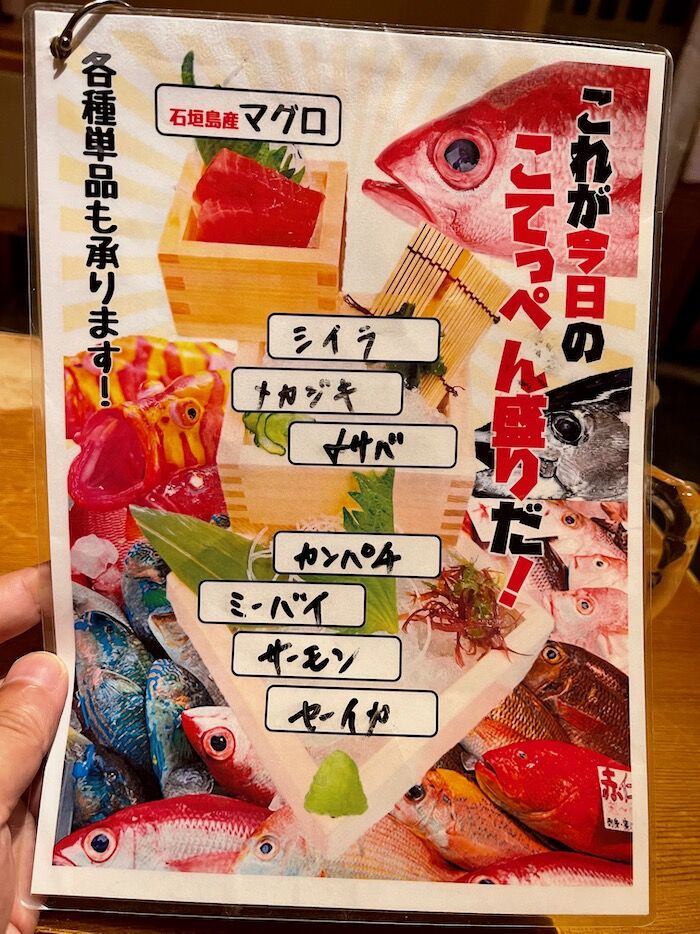 これが今日の
こてっぺん盛りだ!
石垣島産 マグロ
シイラ
メカジキ
〆サバ
カンパチ
ミーバイ
サーモン
セーイカ
各種単品も承ります!